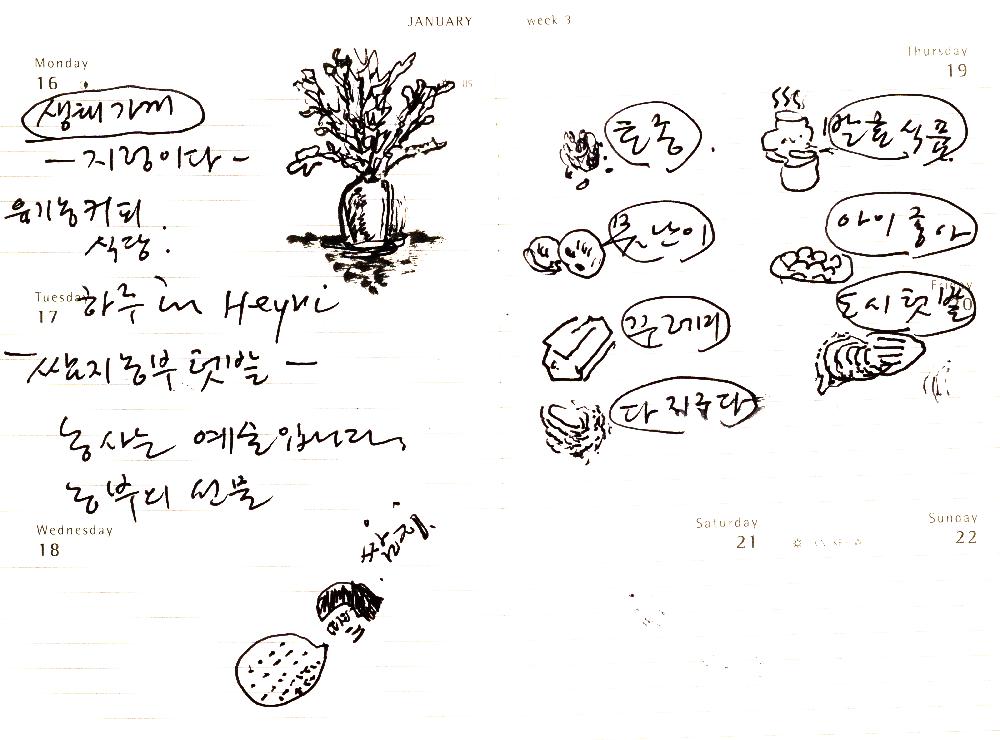 JANUARY
week 3
Monday
16
생태가게
- 지렁이다 -
유기농커피
식당.
Tuesday
17
하루 in Heyri
- 쌈지농부 텃밭 -
농사는 예술입니다,
농부의 선물
Wednesday
18
쌈지.
토종.
못난이
꾸러미
다 퍼주다
Thursday
19
발효식품
아이 좋아
도시텃밭
Saturday
21
Sunday
22